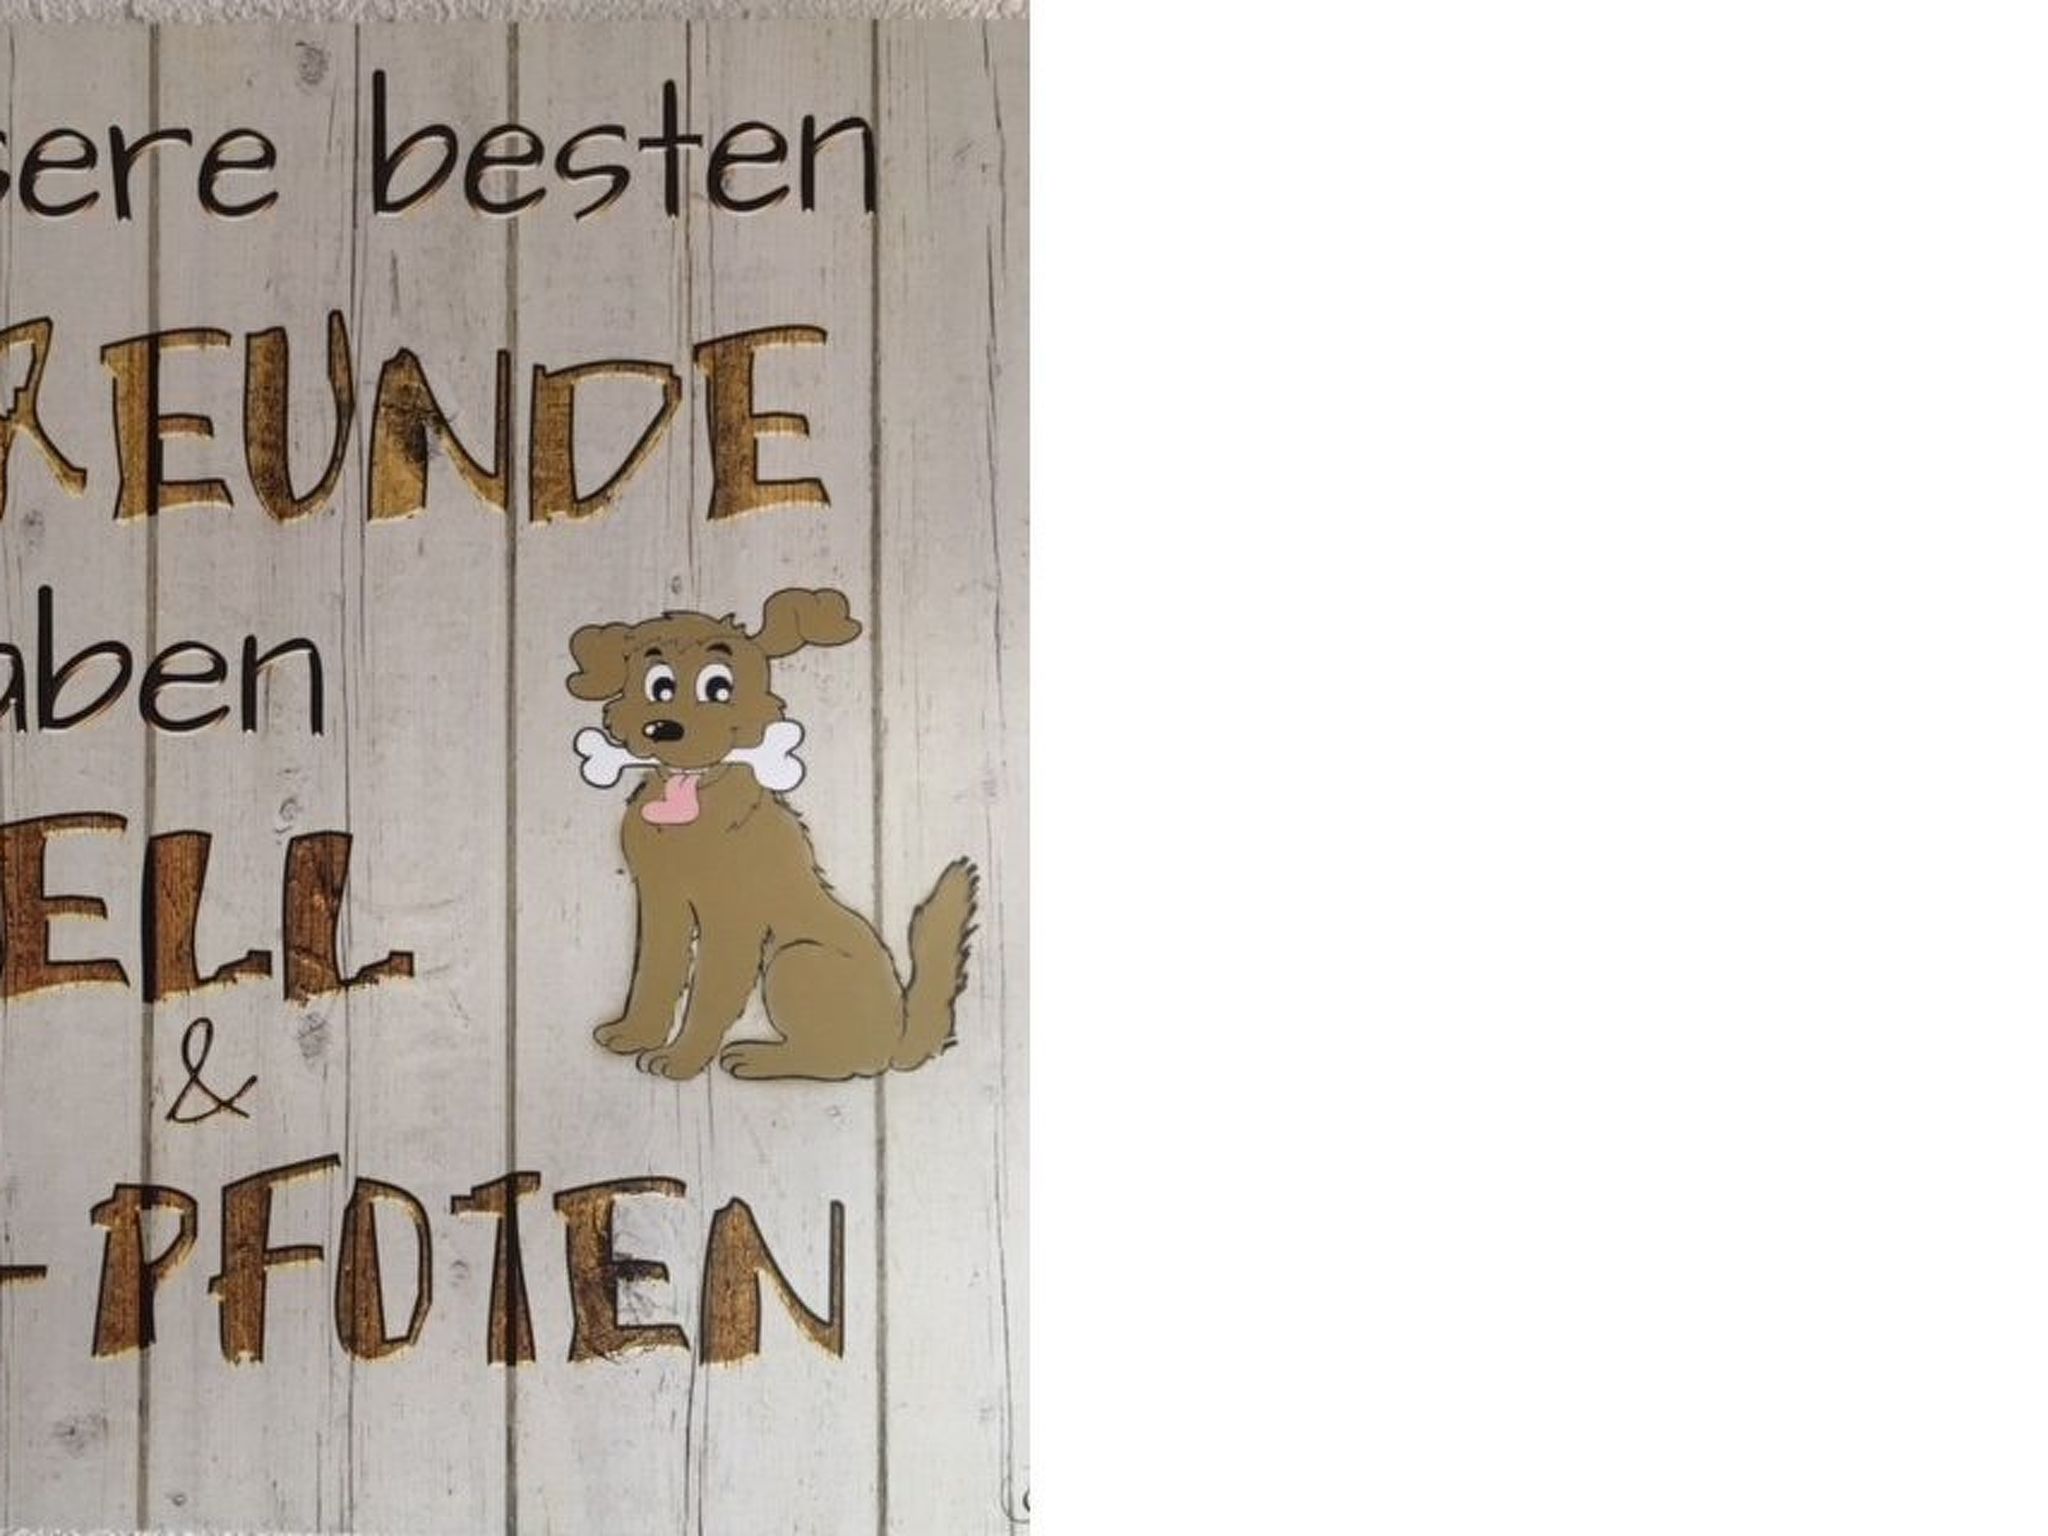 sere besten
REUNDE
aben
ELL
&
- PFOTEN